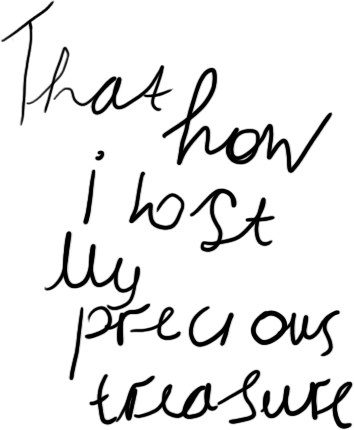 That
how
i lost
My
precious
treasure